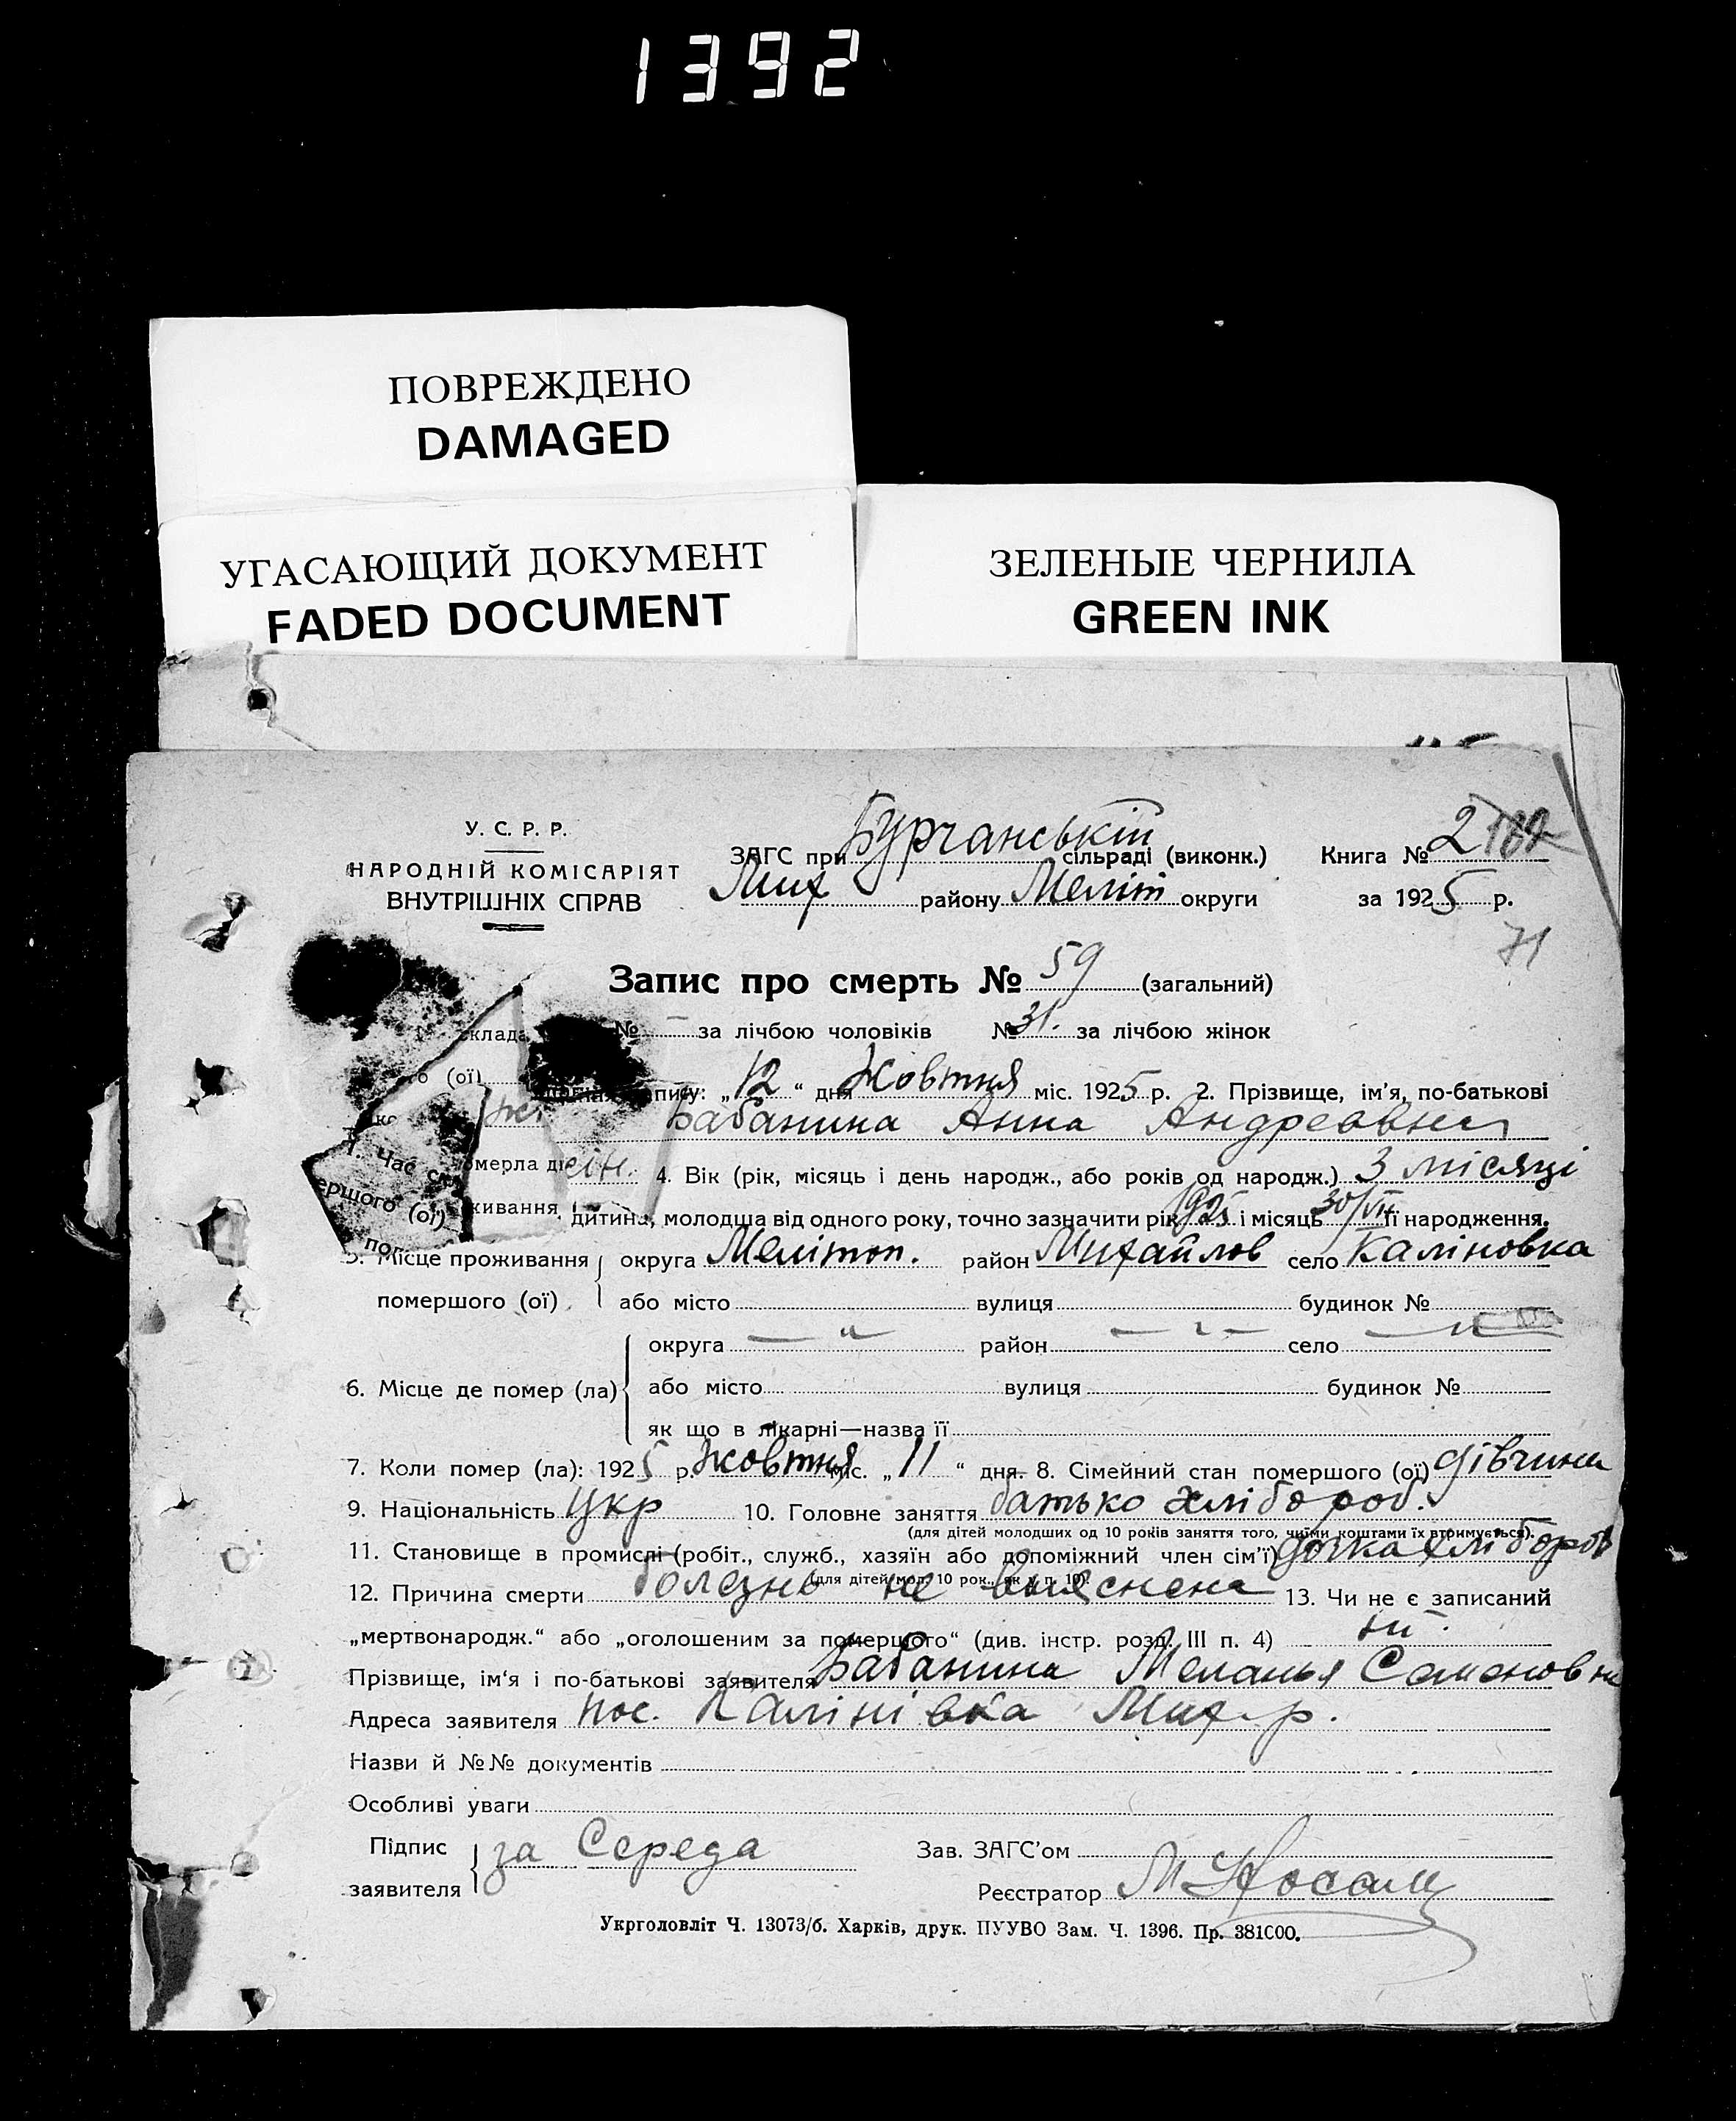 1392
ПОВРЕЖДЕНО
DAMAGED
УГАСАЮЩИЙ ДОКУМЕНТ
FADED DOCUMENT
ЗЕЛЕНЫЕ ЧЕРНИЛА
GREEN INK
У. С. Р. Р.
НАРОДНІЙ КОМІСАРІЯТ
ВНУТРІШНІХ СПРАВ
ЗАГС при Бурчанській сільраді (виконк.)
Мих району Меліт округи
Книга № 2
за 1925 р.
71
Запис про смерть № 59 (загальний)
№ — за лічбою чоловіків № 31. за лічбою жінок
склада
запису: „12“ дня Жовтня міс. 1925 р. 2. Прізвище, ім'я, по-батькові
Бабанина Анна Андреевна
омерла 4. Вік (рік, місяць і день народж., або років од народж.) 3 місяці
живання дитина, молодша від одного року, точно зазначити рік 1925 і місяць 30/VII її народження.
1. Час
ершого (ої)
5. Місце проживання округа Мелітоп. район Михайлов село Каліновка
помершого (ої) або місто вулиця будинок №
округа — „ — район — „ — село — „ —
6. Місце де помер (ла) або місто вулиця будинок №
як що в лікарні—назва її
7. Коли помер (ла): 1925 р. жовтня міс. „11“ дня. 8. Сімейний стан помершого (ої) дівчина
9. Національність Укр 10. Головне заняття батько хлібороб.
(для дітей молодших од 10 років заняття того, чиїми коштами їх втримується).
11. Становище в промислі (робіт., служб., хазяїн або допоміжний член сім'ї) дочка хлібороб
(для дітей мол. 10 рок., як у п. 10).
12. Причина смерти болезнь не выяснена 13. Чи не є записаний
„мертвонародж.“ або „оголошеним за помершого“ (див. інстр. розд. III п. 4) ні.
Прізвище, ім'я і по-батькові заявителя Бабанина Меланья Семеновна
Адреса заявителя пос. Калінівка Мих. р.
Назви й №№ документів
Особливі уваги
Підпис
заявителя за Середа
Зав. ЗАГС'ом
Реєстратор
Укрголовліт Ч. 13073/б. Харків, друк. ПУУВО Зам. Ч. 1396. Пр. 381000.